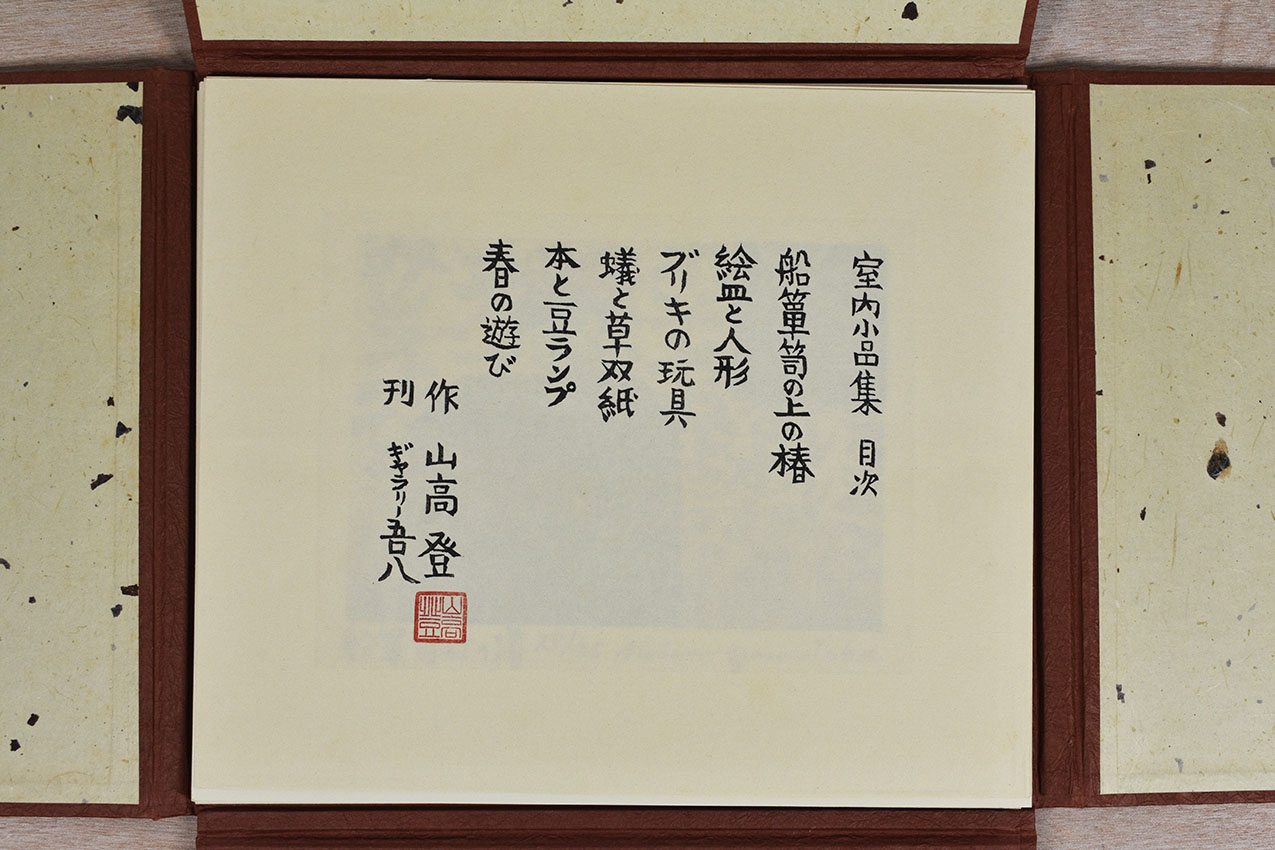 室内小品集 目次
船簞笥の上の椿
絵皿と人形
ブリキの玩具
蟻と草双紙
本と豆ランプ
春の遊び
作 山高登
刊 ギャラリー吾八
山高登